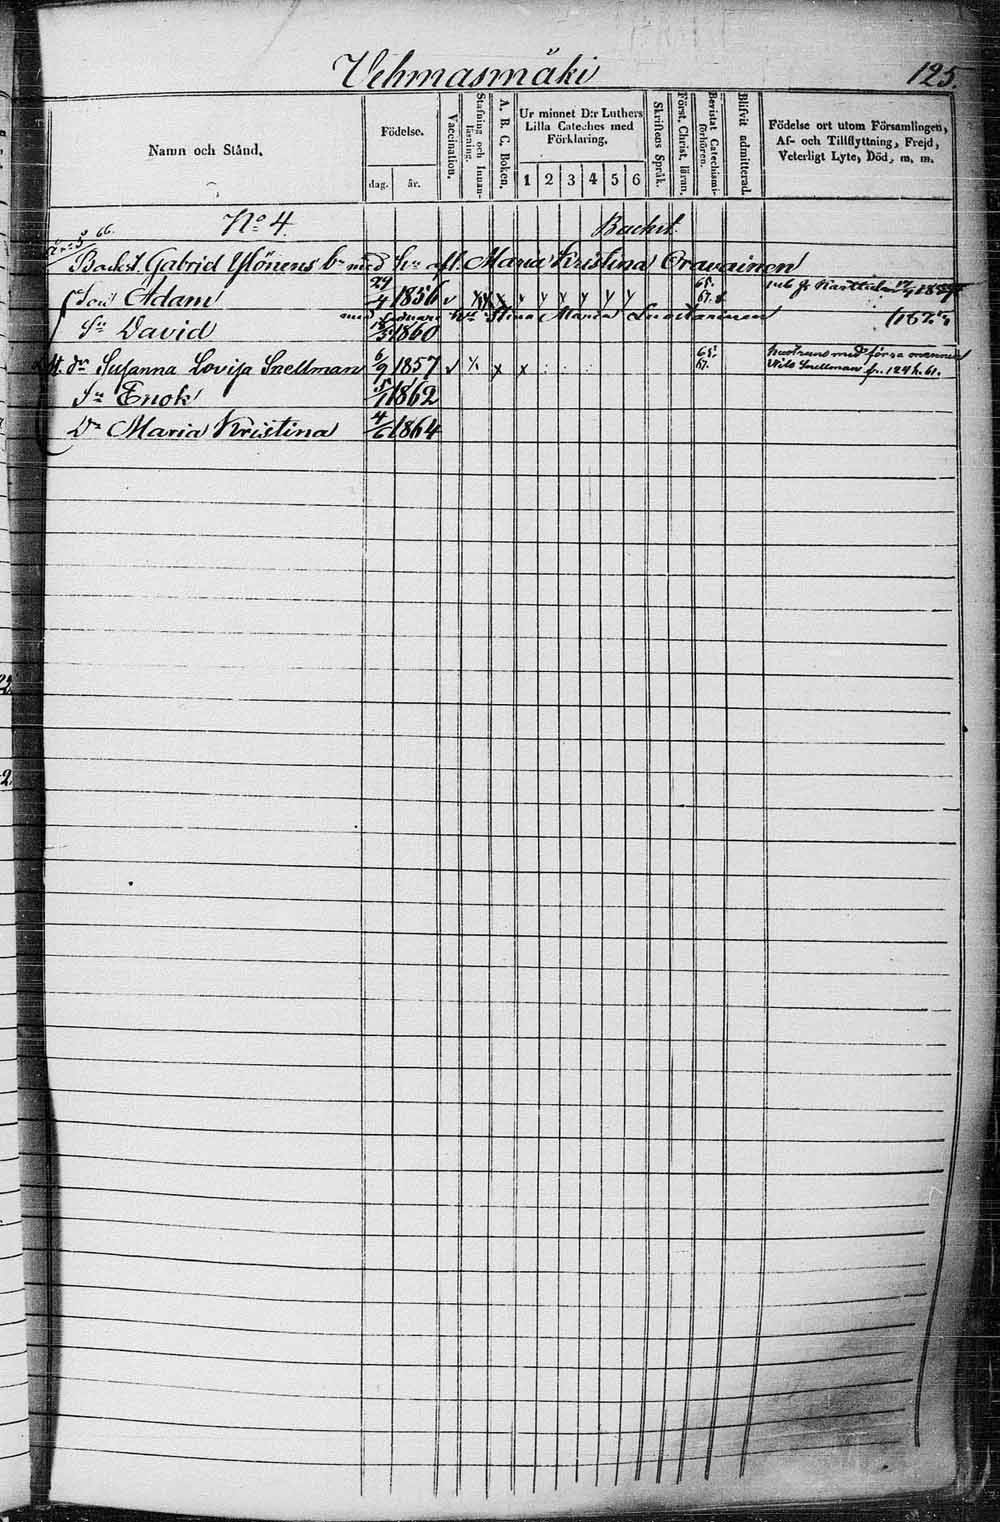 Vehmasmäki 125.
Namn och Stånd.
Födelse.
dag. år.
Vaccination.
Stafning och Innanläsning.
A. B. C. Boken.
Ur minnet D:r Luthers
Lilla Cateches med
Förklaring.
1 2 3 4 5 6
Skriftens Språk.
Först. Christ. läran.
Bevistat Catechismiförhören.
Blifvit admitterad.
Födelse ort utom Församlingen,
Af- och Tillflyttning, Frejd,
Veterligt Lyte, Död, m. m.
66. N:o 4. Backst.
Backst. Gabriel Ylönens b:n med h:u afl. Maria Kristina Oravainen
Son Adam 29/4 1856 v x x x v v v v v v 65. 67. fr. Karttula 1857
med h:u Stina Maria
S:n David 1860
dr Susanna Lovisa Snellman 6/9 1857 v x x x 65. 67. hustruns med förra mannen
Nils Snellman fr. 124 h. 61.
S:n Enok 5/1 1862
D:r Maria Kristina 4/6 1864